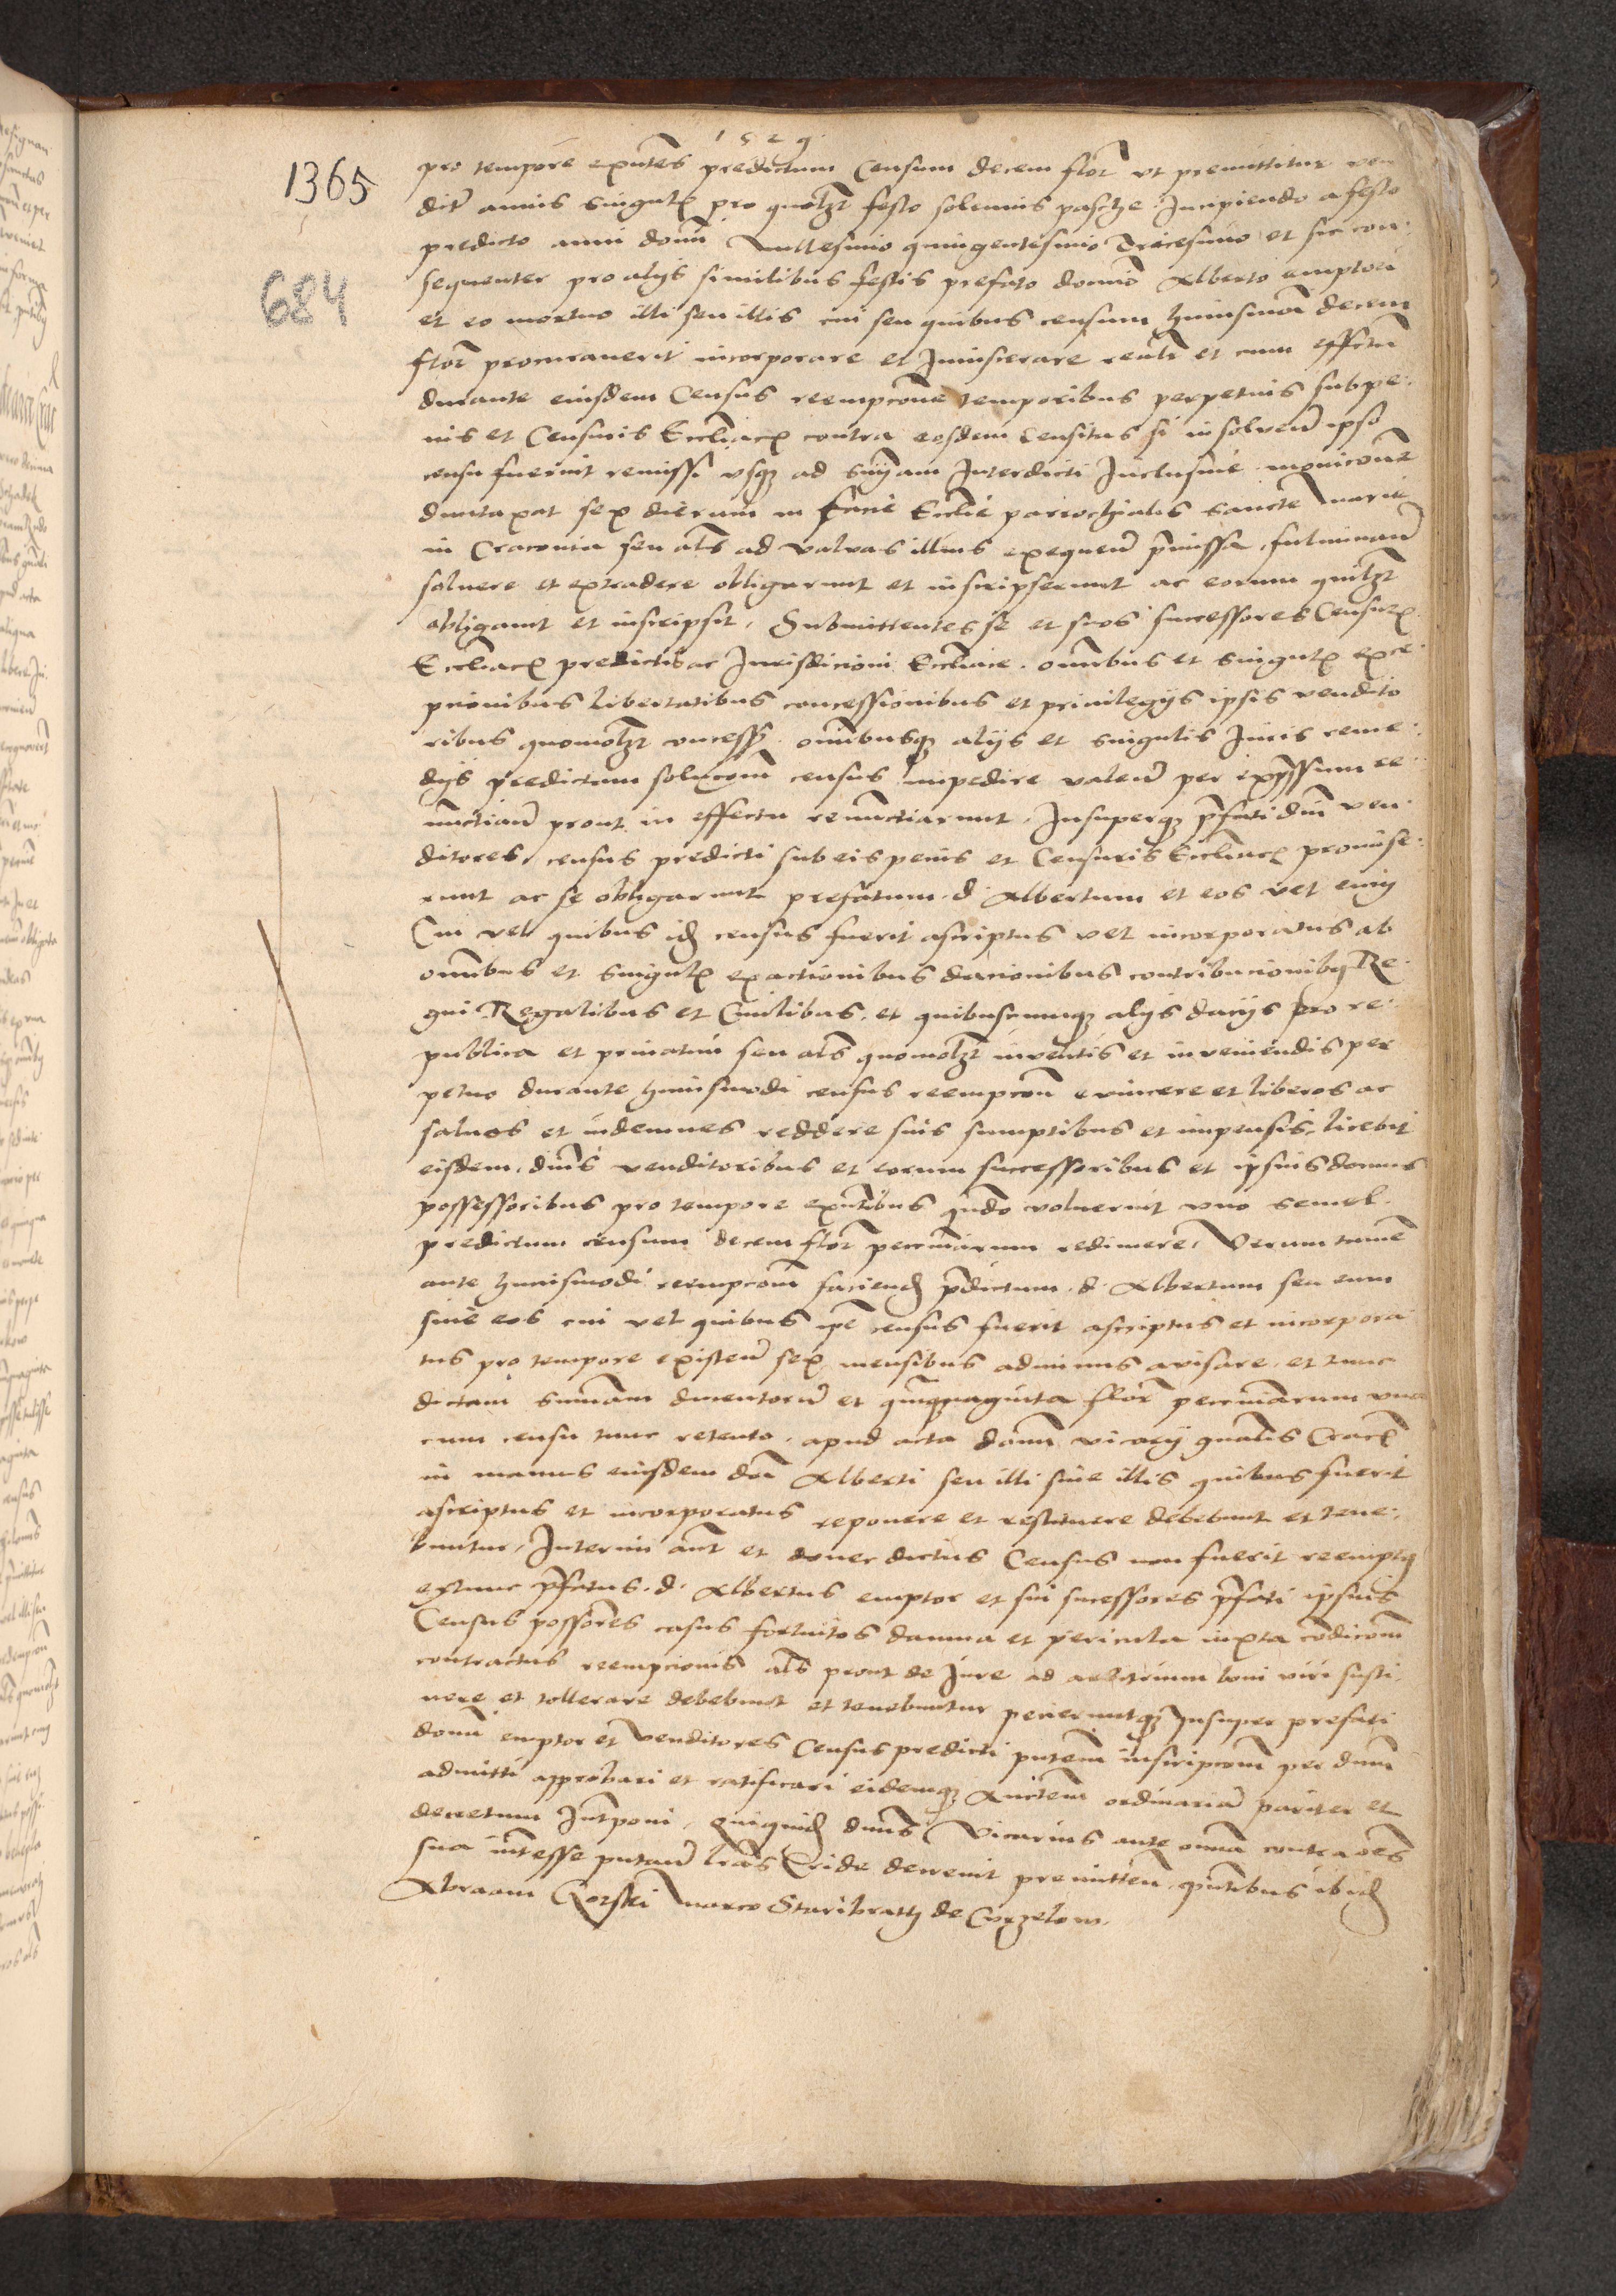 1529
1365
684
pro tempore exn̄tes predictum Censum decem flor̄ vt premittitur ven
dit̄ annis singul̄ pro quol̄zt festo solennis pasche Incipiendo a festo
predicto anni domī Millesimo quingentesimo Tricesimo et sic con:
sequenter pro alijs similibus festis prefato domino Alberto emptori
et eo mortuo illi seu illis cui seu quibus censum huiusmōi decem
flor̄ procurauerit incorporare et Inuiscerare realr̄ et cum effctū
durante eiusdem Census reempcōne temporibus perpetuis sub pe:
nis et Censuris Eccl̄iacꝭ contra eosdem Censitus si in soluen̄ ipso
censu fuerint remissi vsqꝫ ad sn̄iam Interdicti Inclusiue monicōne
duntaxat sex dierum in facie Eccl̄ie parrochialis sancte Marie
in Cracouia seu al̄s ad valuas illius exequen̄ p̄missa fulminan̄
soluere et extradere obligarunt et inscripserunt ac eorum quil̄zt
obligauit et inscripsit. Submittentes se et suos successores Censurꝭ
Eccl̄iacꝭ predictis ac Jurisdicioni Eccl̄iace. omnibus et singulꝭ exce
pcionibus libertatibus concessionibus et priuilegijs ipsis vendito
ribus quomol̄zt concessꝭ. omnibusqꝫ alijs et singulis Juris reme:
dijs predictam solucōnem census impedire valen̄ per expressum re
nuncian̄ prout in effectu renunctiarunt. Insuperqꝫ p̄fati dn̄i ven:
ditores census predicti sub eis penis et Censuris Eccl̄iacꝭ promise:
runt ac se obligarunt prefatum .d. Albertum et eos vel eum
Cui vel quibus idꝫ census fuerit ascriptus vel incorporatus ab
omnibus et singulꝭ exactionibus dacionibus contribucionibꝫ Re:
gni Regalibus et Ciuilibus. et quibuscunqꝫ alijs dacijs pro re:
publica et priuatim seu al̄s quomol̄zt inuentis et inveniendis per
petuo durante huiusmodi census reempcōn euincere et liberos ac
saluos et indemnes reddere suis sumptibus et impensis, licebit
eisdem. dn̄is venditoribus et eorum successoribus et ipsius domus
possessoribus pro tempore exn̄tibus qn̄do voluerint vno semel
predictum censum decem flor̄ pecuniarum redimere. Verum tamē
ante huiusmodi reempcōnem faciendꝫ p̄dictum .d. Albertum seu eum
siue eos cui vel quibus ip̄e census fuerit ascriptus et incorpora
tus pro tempore existen̄ sex mensibus adminus avisare. et tunc
dictam summam ducentorum et quinquaginta flor̄ pecuniarum vna
cum censu tunc retento. apud acta domī vicarij gn̄alis Cracꝭ
in manus eiusdem dn̄i Alberti seu illi siue illis quibus fuerit
ascriptus et incorporatus reponere et restituere debebunt et tene:
buntur. Interim aut̄ et donec dictus Census non fuerit reemptꝫ
extunc p̄fatus .d. Albertus emptor et sui sucessores p̄fati ipsius
Census poss̄ores casus fortuitos damna et pericula iuxta cōdicōnem
contractus reempcionis al̄s prout de Jure ad arbitrium boni viri susti:
nere et tollerare debebunt et tenebuntur pecieruntqꝫ Insuper prefati
domī emptor et venditores Census predicti pn̄tem inscripcōnem per dn̄m
admitti approbari et ratificari eidemqꝫ Auctem ordinariā pariter et
decretum Int̄poni. Quiquidꝫ dn̄us Vicarius ante omnia contra oēs
sua int̄esse putan̄ lr̄as Cride decreuit premitten̄. pn̄tibus ibidꝫ
Abraam Gorski Marco Staribrath de Curzelow.